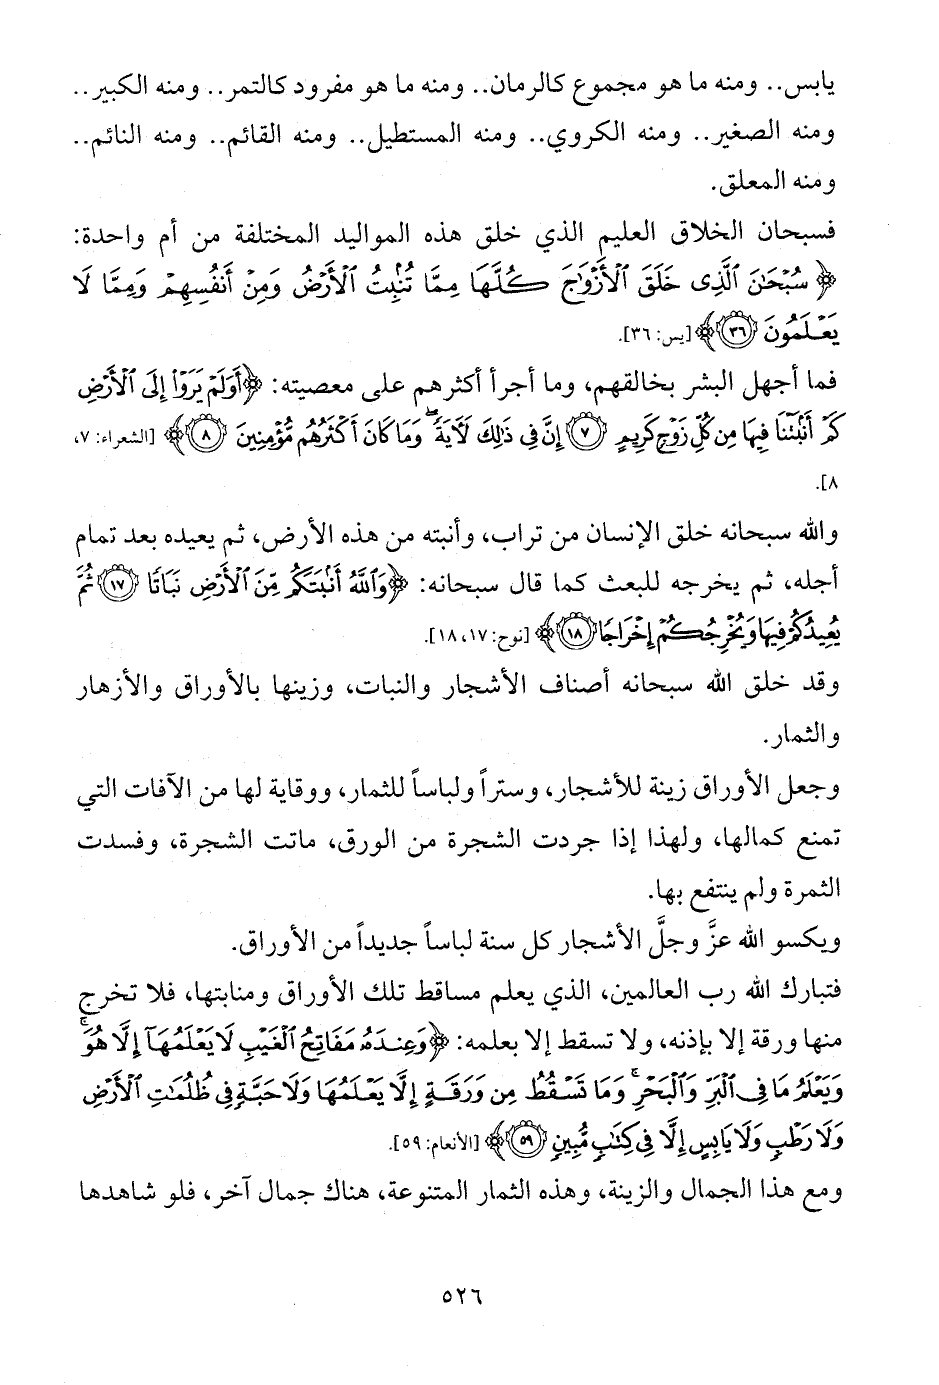 يابس.. ومنه ما هو مجموع كالرمان.. ومنه ما هو مفرود كالتمر.. ومنه الكبير..
ومنه الصغير.. ومنه الكروي.. ومنه المستطيل.. ومنه القائم.. ومنه النائم..
ومنه المعلق.
فسبحان الخلاق العليم الذي خلق هذه المواليد المختلفة من أم واحدة:
﴿سُبْحَٰنَ ٱلَّذِى خَلَقَ ٱلْأَزْوَٰجَ كُلَّهَا مِمَّا تُنۢبِتُ ٱلْأَرْضُ وَمِنْ أَنفُسِهِمْ وَمِمَّا لَا
يَعْلَمُونَ ٣٦﴾ [يس: ٣٦].
فما أجهل البشر بخالقهم، وما أجرأ أكثرهم على معصيته: ﴿أَوَلَمْ يَرَوْا۟ إِلَى ٱلْأَرْضِ
كَمْ أَنۢبَتْنَا فِيهَا مِن كُلِّ زَوْجٍ كَرِيمٍ ٧ إِنَّ فِى ذَٰلِكَ لَءَايَةً ۖ وَمَا كَانَ أَكْثَرُهُم مُّؤْمِنِينَ ٨﴾ [الشعراء: ٧،
٨].
والله سبحانه خلق الإنسان من تراب، وأنبته من هذه الأرض، ثم يعيده بعد تمام
أجله، ثم يخرجه للبعث كما قال سبحانه: ﴿وَٱللَّهُ أَنۢبَتَكُم مِّنَ ٱلْأَرْضِ نَبَاتًا ١٧ ثُمَّ
يُعِيدُكُمْ فِيهَا وَيُخْرِجُكُمْ إِخْرَاجًا ١٨﴾ [نوح: ١٧، ١٨].
وقد خلق الله سبحانه أصناف الأشجار والنبات، وزينها بالأوراق والأزهار
والثمار.
وجعل الأوراق زينة للأشجار، وستراً ولباساً للثمار، ووقاية لها من الآفات التي
تمنع كمالها، ولهذا إذا جردت الشجرة من الورق، ماتت الشجرة، وفسدت
الثمرة ولم ينتفع بها.
ويكسو الله عزَّ وجلَّ الأشجار كل سنة لباساً جديداً من الأوراق.
فتبارك الله رب العالمين، الذي يعلم مساقط تلك الأوراق ومنابتها، فلا تخرج
منها ورقة إلا بإذنه، ولا تسقط إلا بعلمه: ﴿وَعِندَهُۥ مَفَاتِحُ ٱلْغَيْبِ لَا يَعْلَمُهَآ إِلَّا هُوَ ۚ
وَيَعْلَمُ مَا فِى ٱلْبَرِّ وَٱلْبَحْرِ ۚ وَمَا تَسْقُطُ مِن وَرَقَةٍ إِلَّا يَعْلَمُهَا وَلَا حَبَّةٍ فِى ظُلُمَٰتِ ٱلْأَرْضِ
وَلَا رَطْبٍ وَلَا يَابِسٍ إِلَّا فِى كِتَٰبٍ مُّبِينٍ ٥٩﴾ [الأنعام: ٥٩].
ومع هذا الجمال والزينة، وهذه الثمار المتنوعة، هناك جمال آخر، فلو شاهدها
٥٢٦